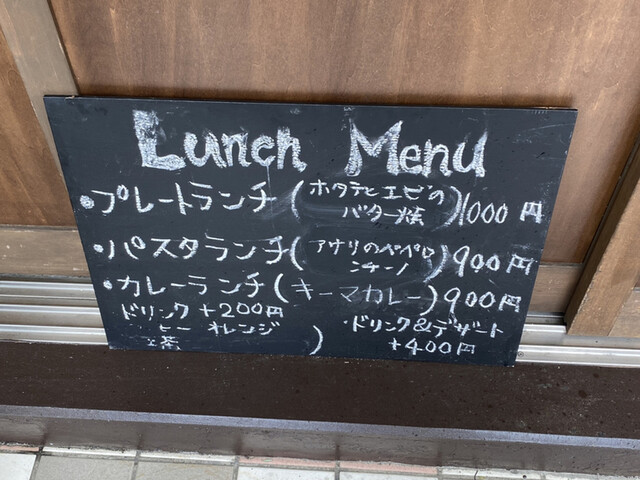 Lunch Menu
・プレートランチ(ホタテとエビのバター炫)1000円
・パスタランチ(アサリのペペロンチーノ)900円
・カレーランチ(キーマカレー)900円
ドリンク +200円
ヒー オレンジ
茶 )
・ドリンク&デザート
+400円